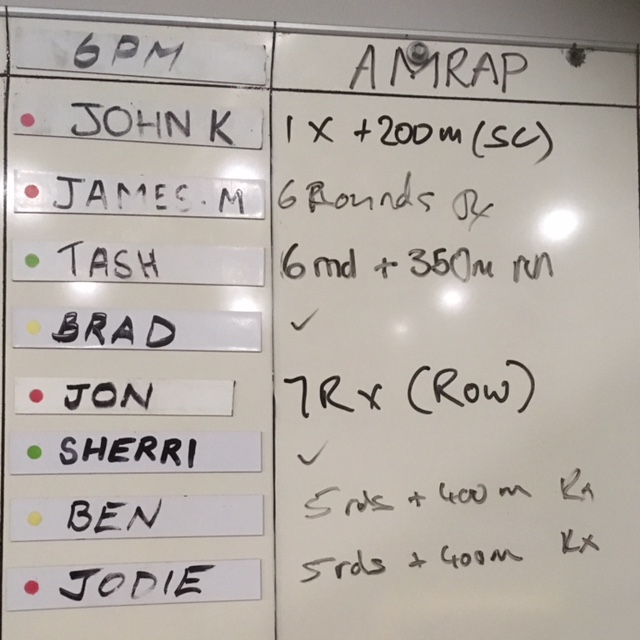 6PM AMRAP
JOHN K 1 X +200m (SC)
JAMES.M 6 Rounds Rx
TASH 6 rnd + 350m run
BRAD ✓
JON 7 Rx (Row)
SHERRI ✓
BEN 5 rds + 400m Rx
JODIE 5 rds + 400m Rx